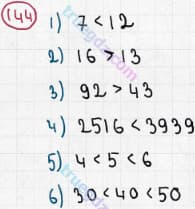 144
1) 7 < 12
2) 16 > 13
3) 92 > 43
4) 2516 < 3939
5) 4 < 5 < 6
6) 30 < 40 < 50